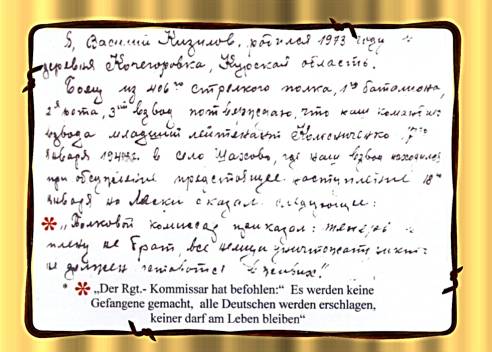 Я, Василий Кизилов, родился 1973 году в
деревня Кочегоровка, Курской область.
Боец из 406го стрелкого полка, 1го баталиона,
2я рота, 3ий взвод потвержаю, что наш
взвода младший лейтенант 7го
Января 194 в село где наш взвод находился
при обсуждении предстоящее наступление 18го
января на сказал следующее:
* „Полковой комиссар приказал: теперь в
плену не брат, все немци уничтожать никто
не должен оставатся в живых!“
* * „Der Rgt.- Kommissar hat befohlen:“ Es werden keine
Gefangene gemacht, alle Deutschen werden erschlagen,
keiner darf am Leben bleiben“